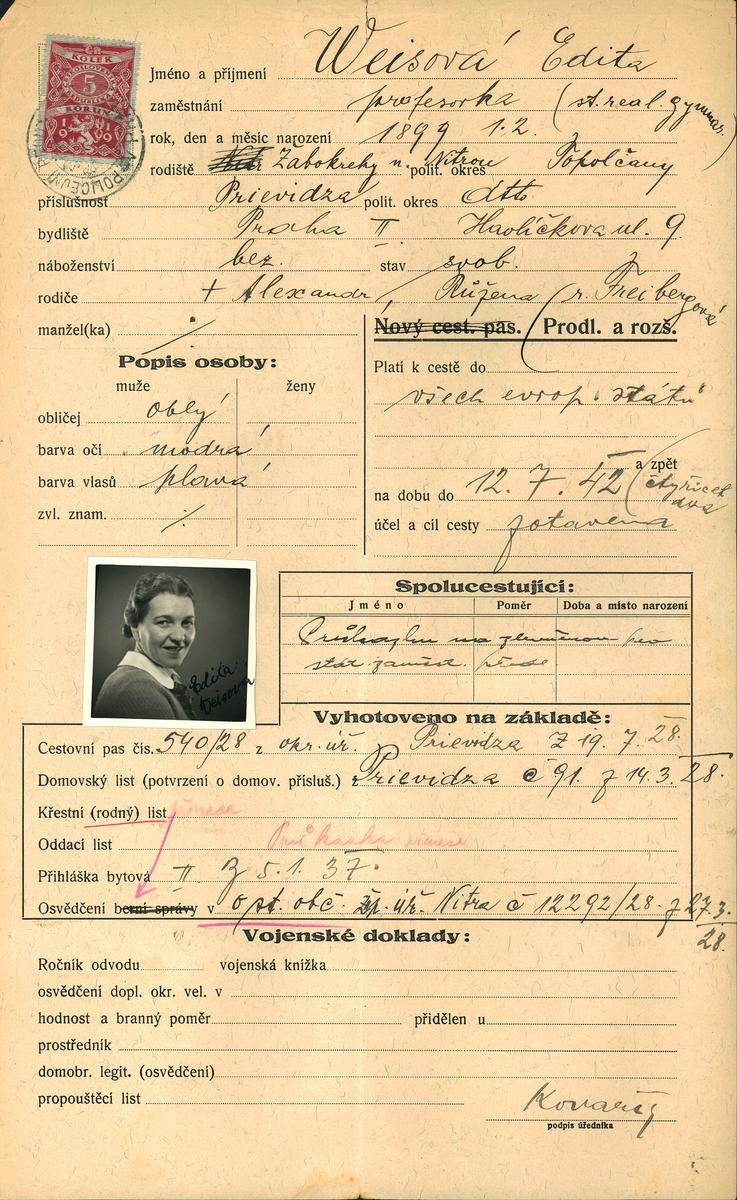 ČR
KOLEK
5
KORUN
1919
Jméno a příjmení Weisová Edita
zaměstnání profesorka (st. real. gymnas.)
rok, den a měsíc narození 1899 1.2.
rodiště Žabokreky n. Nitrou polit. okres Topolčany
příslušnost Prievidza polit. okres dtto
bydliště Praha II Havlíčkova ul. 9
náboženství bez. stav svob.
rodiče + Alexandr, Růžena (r. Freibergová)
manžel(ka) ./. Nový cest. pas. Prodl. a rozš.
Popis osoby:
muže ženy
obličej oblý
barva očí modrá
barva vlasů plavá
zvl. znam. ./.
Platí k cestě do
všech evrop. států
a zpět
na dobu do 12. 7. 42 (čtyřicet dva
účel a cíl cesty zotavená
Edita Weisová
Spolucestující:
Jméno Poměr Doba a místo narození
Průkazku na
stát. zaměst.
Vyhotoveno na základě:
Cestovní pas čís. 540/28 z okr. úř. Prievidza z 19. 7. 28.
Domovský list (potvrzení o domov. přísluš.) Prievidza č 91. z 14. 3. 28.
Křestní (rodný) list přinese
Oddací list Průkazka přinese
Přihláška bytová II z 5. 1. 37.
Osvědčení berní správy v o st. obč. žp. úř. Nitra č 12292/28. z 27. 3. 28.
Vojenské doklady:
Ročník odvodu vojenská knížka
osvědčení dopl. okr. vel. v
hodnost a branný poměr přidělen u
prostředník
domobr. legit. (osvědčení)
propouštěcí list
Kovařík
podpis úředníka